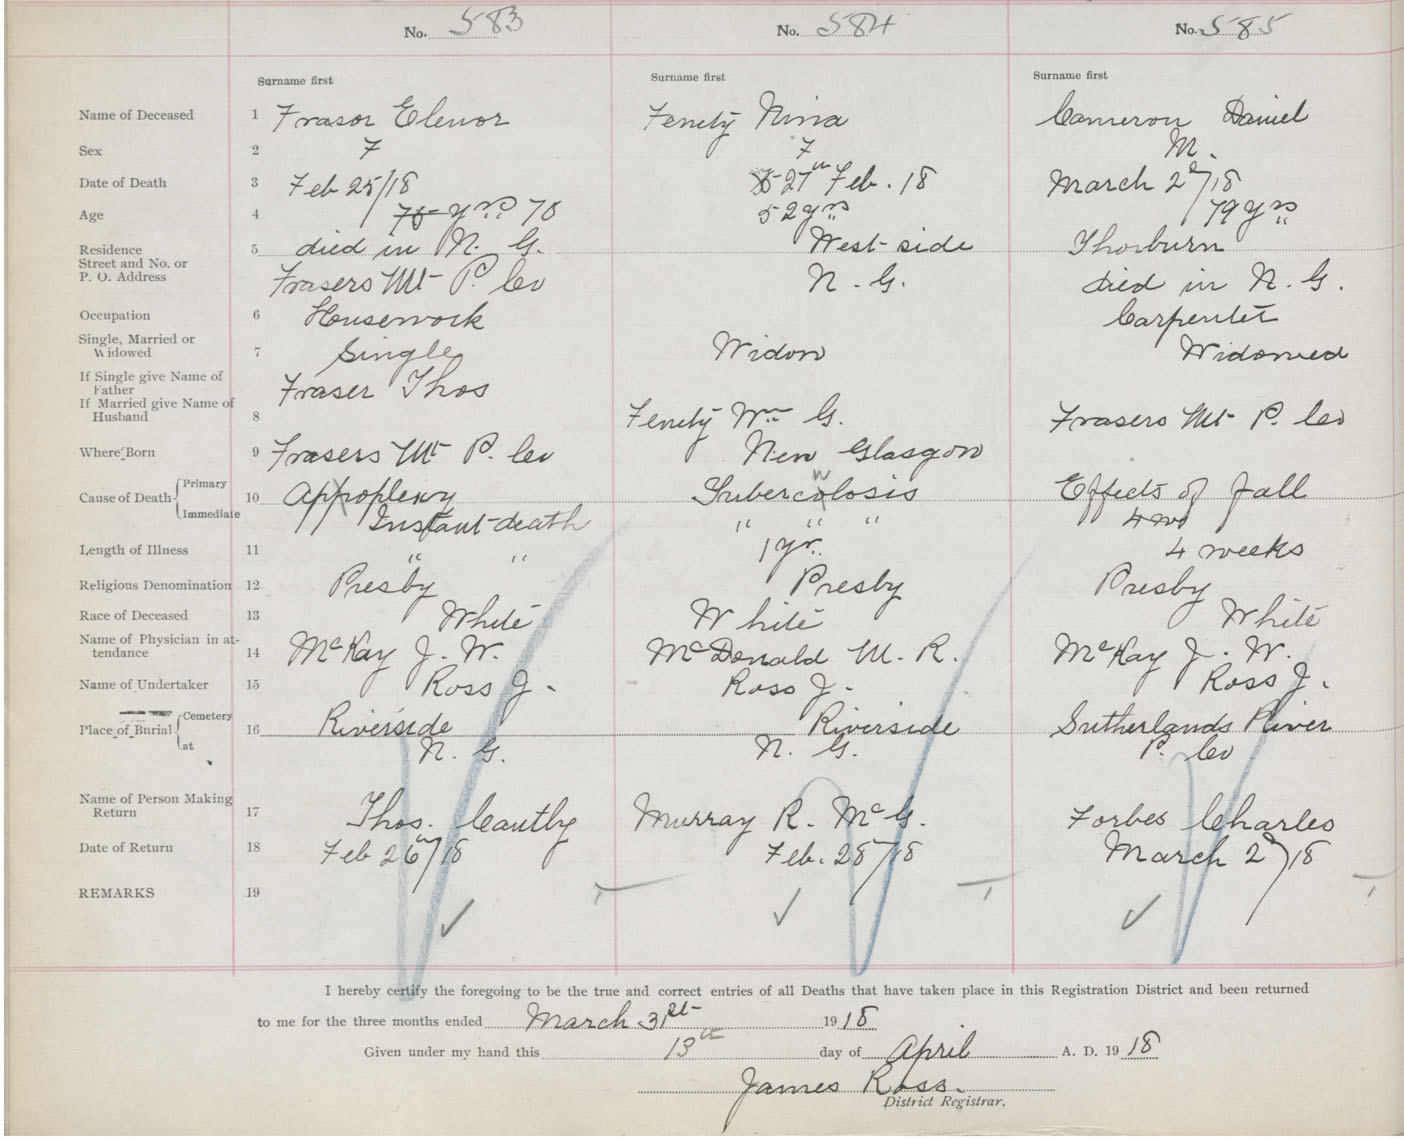 No. 583 No. 584 No. 585
Surname first Surname first Surname first
Name of Deceased 1 Frasor Elenor Fenety Nina Cameron Daniel
Sex 2 F F M.
Date of Death 3 Feb 25/18 27th Feb. 18 March 2nd/18
Age 4 yrs 70 52 yrs 79 yrs
Residence 5 died in N. G. West side Thorburn
Street and No. or
P. O. Address Frasers Mt P. Co N. G. died in N. G.
Occupation 6 Housework Carpenter
Single, Married or
Widowed 7 Single Widow Widowed
If Single give Name of
Father Fraser Thos
If Married give Name of
Husband 8 Fenety Wm G. Frasers Mt P. Co
Where Born 9 Frasers Mt P. Co New Glasgow
Cause of Death Primary 10 Appoplexy Tubercolosis Effects of fall
Immediate Instant death " " " 4 wo
Length of Illness 11 " " 1 yr. 4 weeks
Religious Denomination 12 Presby Presby Presby
Race of Deceased 13 White White White
Name of Physician in at-
tendance 14 McKay J. W. McDonald M. R. McKay J. W.
Name of Undertaker 15 Ross J. Ross J. Ross J.
Place of Burial Cemetery 16 Riverside Riverside Sutherlands River
at N. G. N. G. P. Co
Name of Person Making
Return 17 Thos. Cantly Murray R. McG. Forbes Charles
Date of Return 18 Feb 26th/18 Feb. 28/18 March 2nd/18
REMARKS 19
I hereby certify the foregoing to be the true and correct entries of all Deaths that have taken place in this Registration District and been returned
to me for the three months ended March 31st 1918
Given under my hand this 13th day of April A. D. 1918
James Ross.
District Registrar.